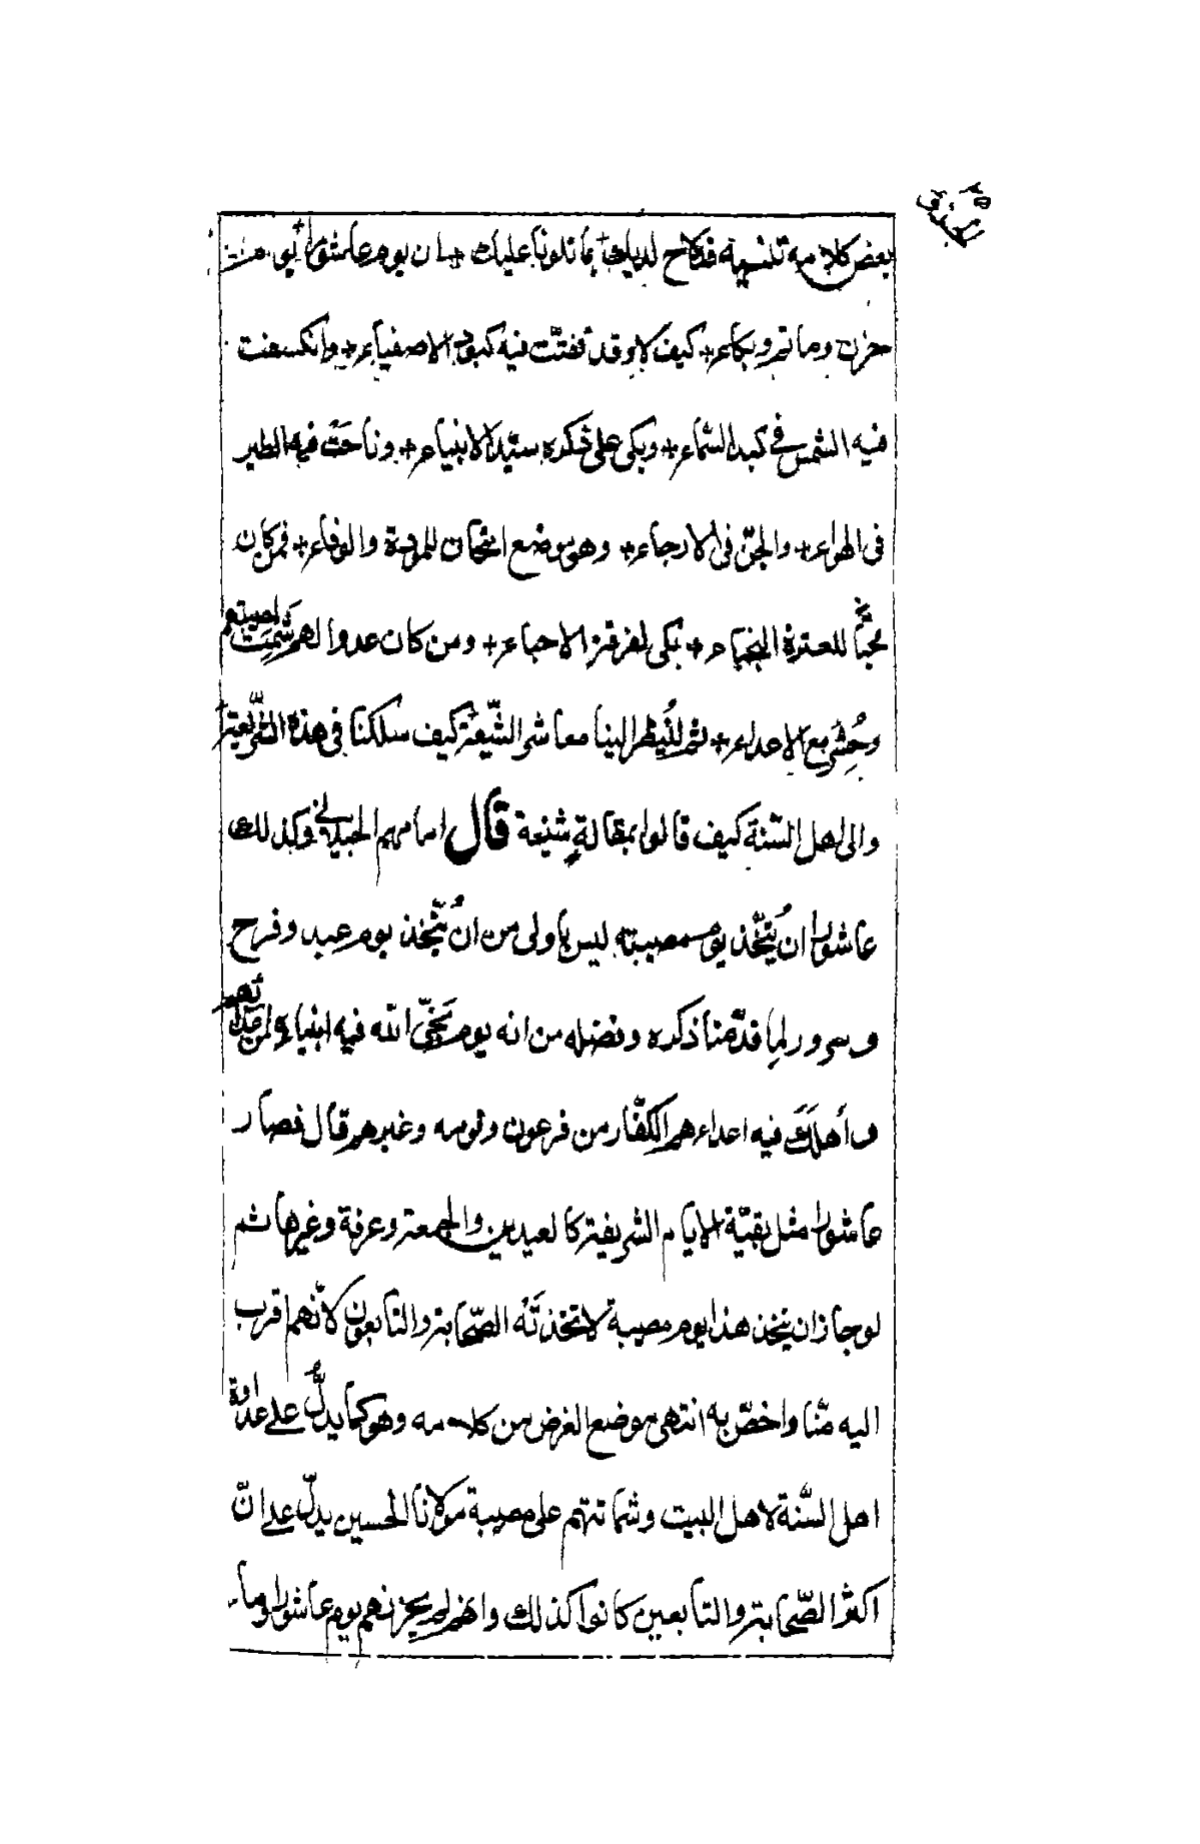 بعض كلامه تنبيه قد لاح لديك بما تلونا عليك + ان يوم عاشورا يوم
حزن وماتم وبكاء + كيف لا وقد تفتّت فيه كبود الاصفياء + وانكسفت
فيه الشمس في كبد السّماء + وبكى على ذكره سيّد الانبياء + وناحَتْ فيه الطير
فى الهواء + والجنّ فى الارجاء + وهو موضع امتحان للمودة والوفاء + فمن كان
محبًّا للعترة النجباء + بكى لفرقة الاحباء + ومن كان عدوا لهم شَمِتَ لمصيبتهم
وحُشِر مع الاعداء + ثم لْيُنظر الينا معاشر الشّيعة كيف سلكنا فى هذه الشّريعة
والى اهل السّنة كيف قالوا بمقالةٍ شنيعة قال امامهم الجيلانى وكذلك
عاشورا انْ يُتّخذ يوم مصيبته ليس باولى من انْ يُتّخذ يوم عيد وفرح
وسرور لِما قدّمنا ذكره وفضله من انه يوم نَجّى الله فيه انبياءه من اعدائهم
وأهلَكَ فيه اعداءهم الكفّار من فرعون وقومه وغيرهم قال فصار
عاشورا مثل بقيّة الايام الشريفة كالعيدين والجمعة وعرفة وغيرها ثم
لو جاز ان يتخذ هذا يوم مصيبة لاتّخذتْه الصّحابة والتابعون لانّهم اقرب
اليه منّا واخصّ به انتهى موضع الغرض من كلامه وهو كما يدلُّ على عداوة
اهل السّنة لاهل البيت وشماتتهم على مصيبة مولانا الحسين يدلّ على انّ
اكثر الصّحابة والتابعين كانوا كذلك وانهم لم يحزنهم يوم عاشورا وما